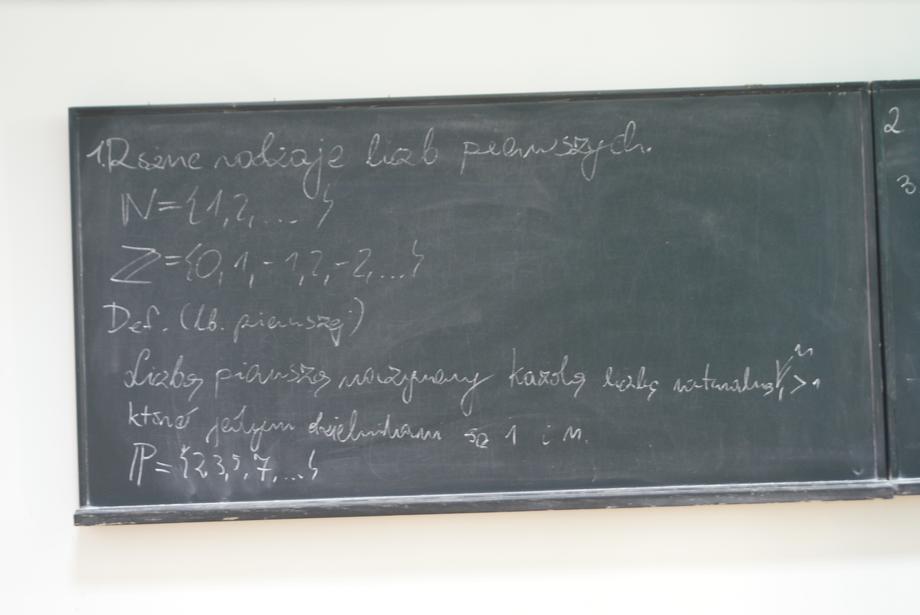 1. Rożne rodzaje liczb pierwszych.
N={1,2,....}
Z={0,1,-1,2,-2,...}
Def. (lb. pierwszej)
Liczbą pierwszą nazywamy każdą liczbę naturalną n > 1
które jedynym dzielnikam są 1 i n.
P={2,3,5,7,...}
2
3